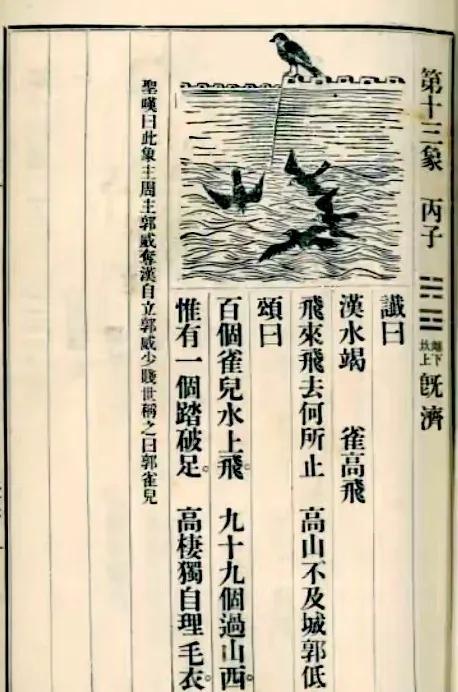 第十三象 丙子 ䷾ 離下坎上 旣濟
讖曰
漢水竭 雀高飛
飛來飛去何所止 高山不及城郭低
頌曰
百個雀兒水上飛。九十九個過山西。
惟有一個踏破足。高棲獨自理毛衣。
聖嘆曰此象主周主郭威奪漢自立郭威少賤世稱之曰郭雀兒